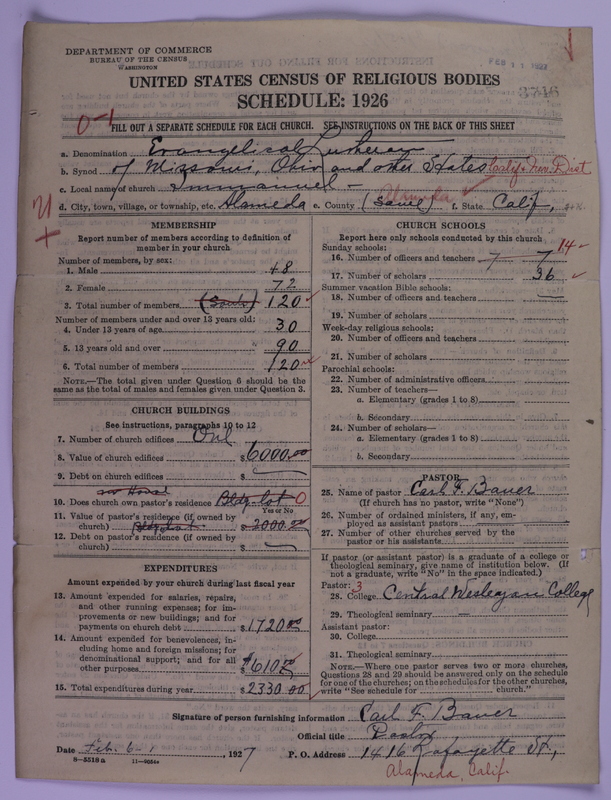 DEPARTMENT OF COMMERCE
BUREAU OF THE CENSUS
WASHINGTON
FEB 11 1927
3746
UNITED STATES CENSUS OF RELIGIOUS BODIES
SCHEDULE: 1926
0-1
FILL OUT A SEPARATE SCHEDULE FOR EACH CHURCH. SEE INSTRUCTIONS ON THE BACK OF THIS SHEET
a. Denomination Evangelical Lutheran
b. Synod of Missouri, Ohio and other States Calif & Nev. Dist
c. Local name of church Immanuel -
Alameda
d. City, town, village, or township, etc. Alameda e. County (Same) f. State Calif,
MEMBERSHIP
Report number of members according to definition of member in your church.
Number of members, by sex:
1. Male 48
2. Female 72
3. Total number of members (Souls) 120
Number of members under and over 13 years old:
4. Under 13 years of age 30
5. 13 years old and over 90
6. Total number of members 120
NOTE.—The total given under Question 6 should be the same as the total of males and females given under Question 3.
CHURCH BUILDINGS
See instructions, paragraphs 10 to 12
7. Number of church edifices One
8. Value of church edifices $ 6000.00
9. Debt on church edifices $ —
10. Does church own pastor's residence Bldg. lot 0
Yes or No
11. Value of pastor's residence (if owned by church) Bldg. lot $ 2000.00
12. Debt on pastor's residence (if owned by church) $ —
EXPENDITURES
Amount expended by your church during last fiscal year
13. Amount expended for salaries, repairs, and other running expenses; for improvements or new buildings; and for payments on church debt $ 1720.00
14. Amount expended for benevolences, including home and foreign missions; for denominational support; and for all other purposes $ 610
15. Total expenditures during year $ 2330.00
CHURCH SCHOOLS
Report here only schools conducted by this church
Sunday schools:
16. Number of officers and teachers 7 7 14
17. Number of scholars 36
Summer vacation Bible schools:
18. Number of officers and teachers —
19. Number of scholars
Week-day religious schools:
20. Number of officers and teachers
21. Number of scholars
Parochial schools:
22. Number of administrative officers
23. Number of teachers—
a. Elementary (grades 1 to 8)
b. Secondary
24. Number of scholars—
a. Elementary (grades 1 to 8)
b. Secondary
PASTOR
25. Name of pastor Carl F. Bauer
(If church has no pastor, write "None")
26. Number of ordained ministers, if any, employed as assistant pastors
27. Number of other churches served by the pastor or his assistants
If pastor (or assistant pastor) is a graduate of a college or theological seminary, give name of institution below. (If not a graduate, write "No" in the space indicated.)
Pastor: 3
28. College Central Wesleyan College
29. Theological seminary —
Assistant pastor:
30. College
31. Theological seminary
NOTE.—Where one pastor serves two or more churches, Questions 28 and 29 should be answered only on the schedule for one of the churches; on the schedules for the other churches, write "See schedule for ____ church."
Signature of person furnishing information Carl F. Bauer
Official title Pastor
Date Feb. 6-1, 1927 P. O. Address 1416 Lafayette St.,
8-5518a 11-9054a
Alameda, Calif.